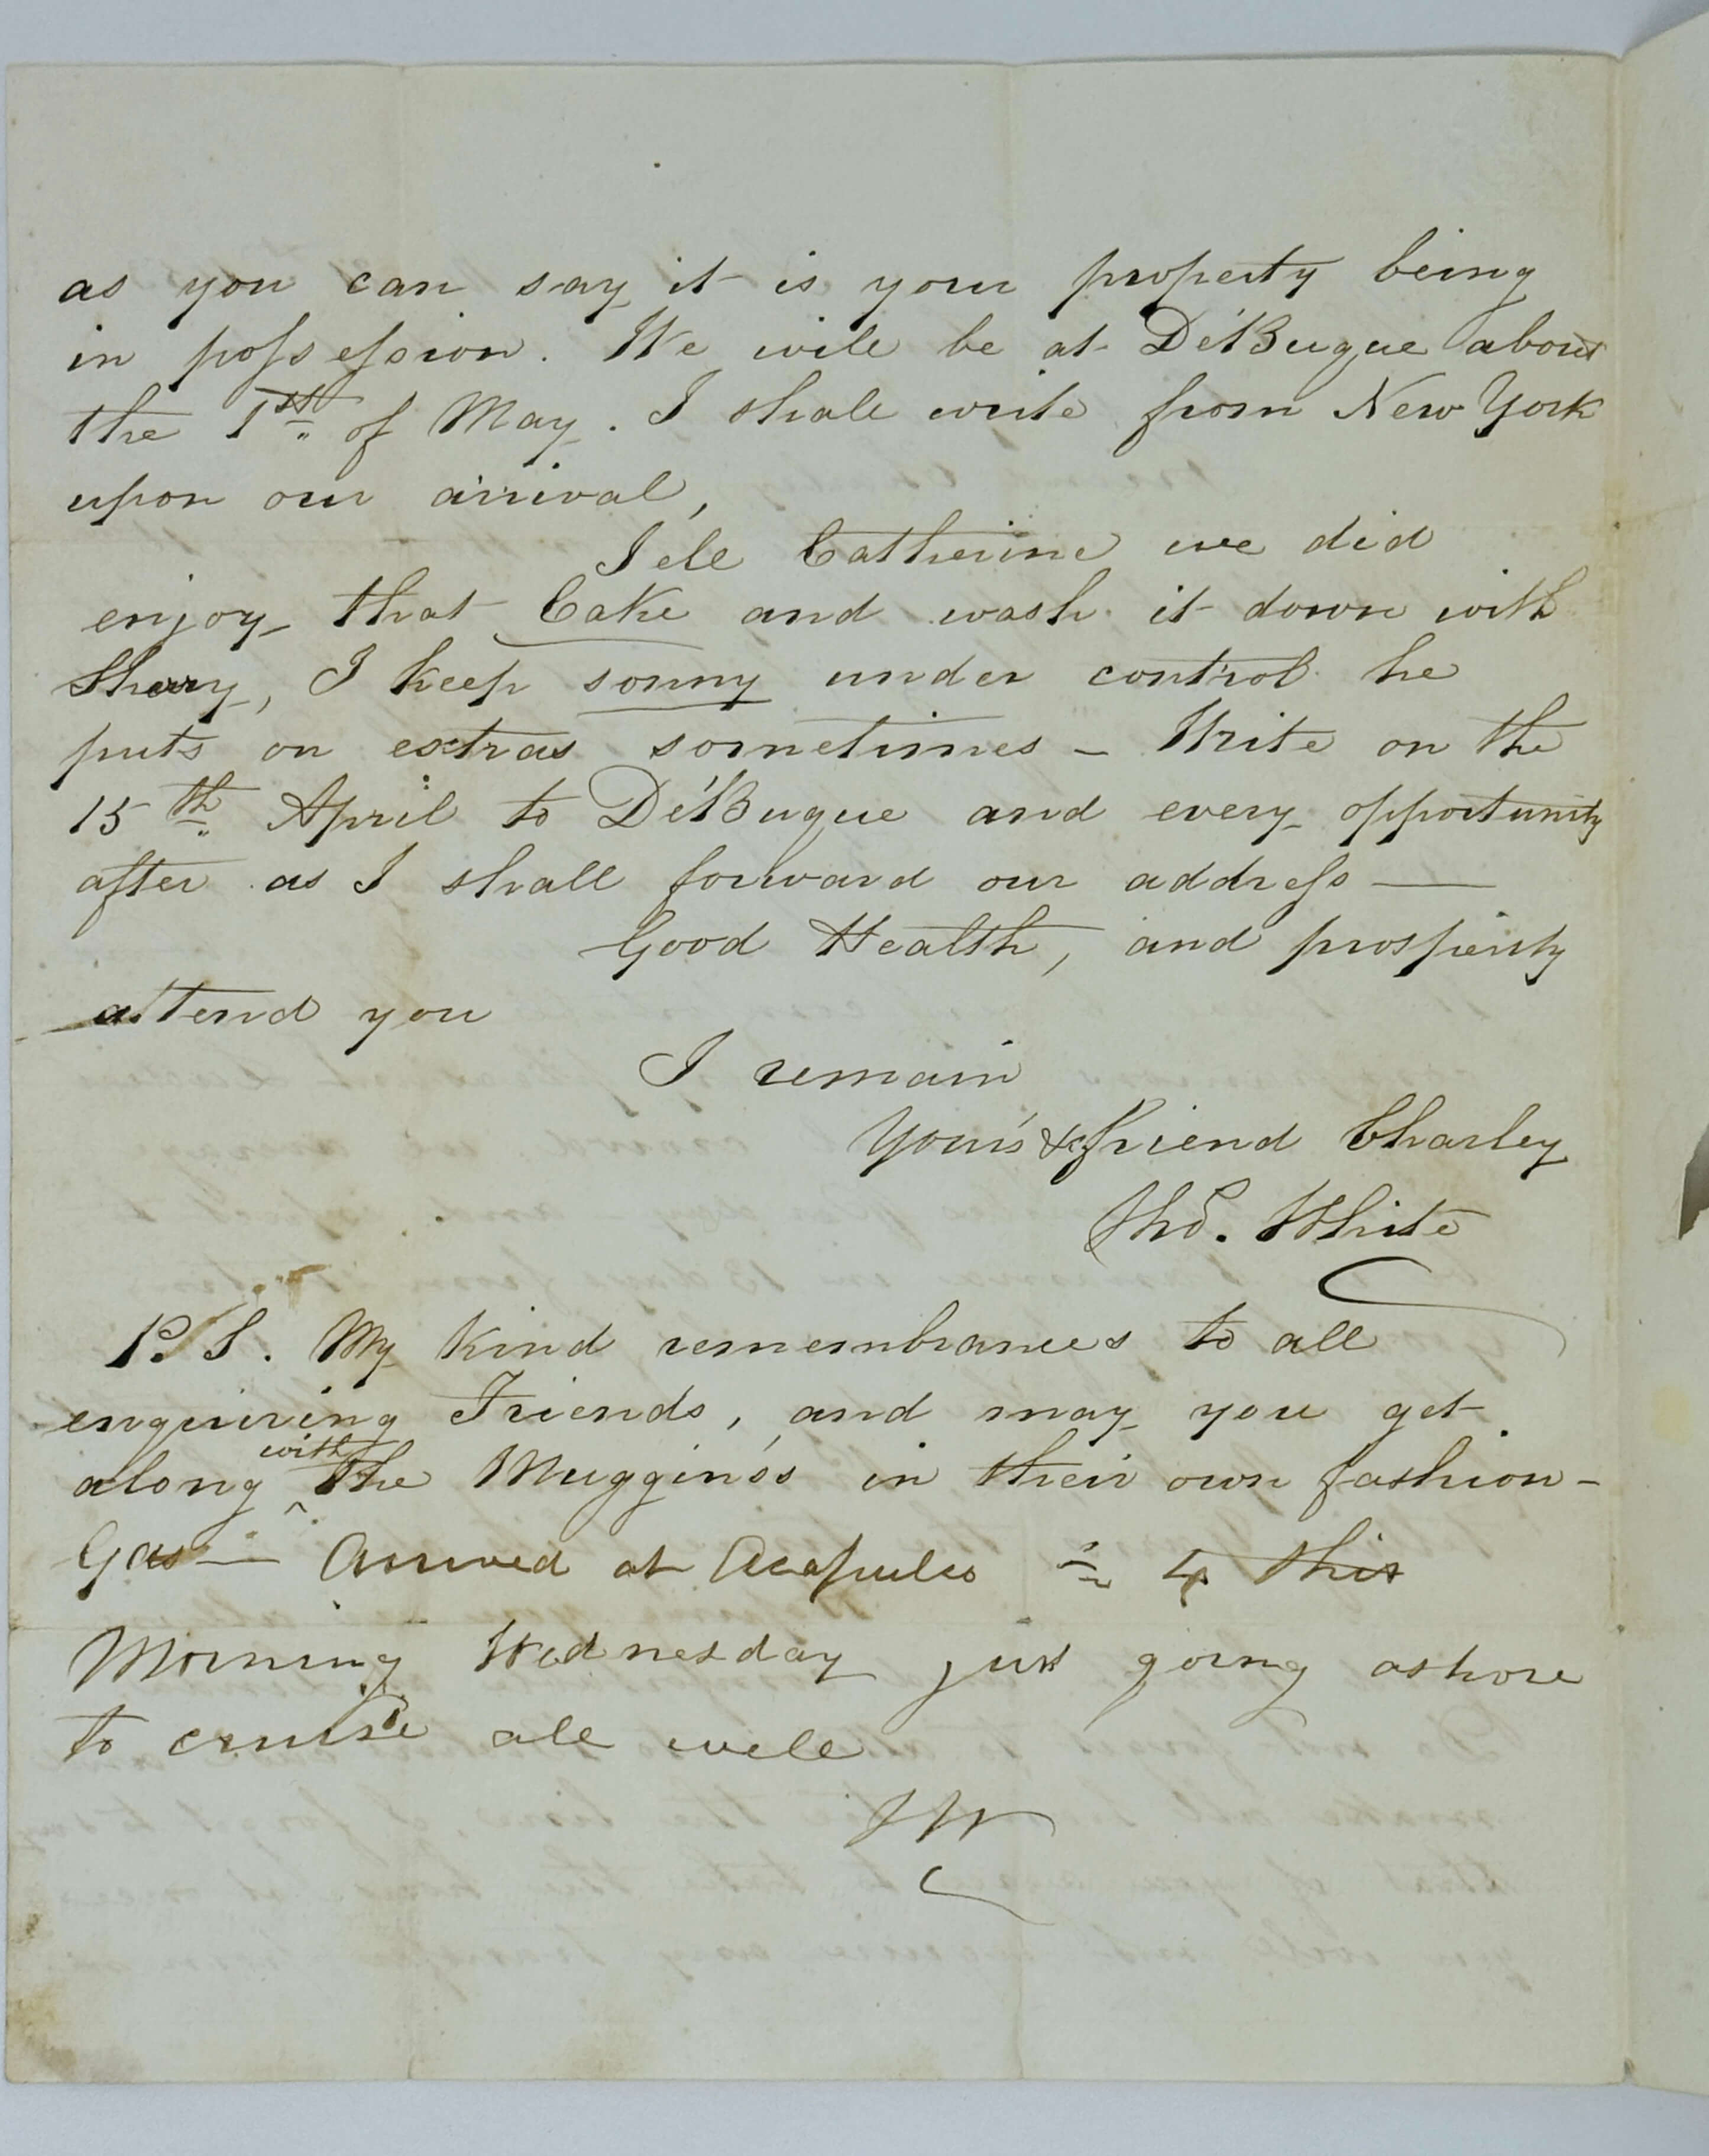 as you can say it is your property being
in poſseſsion. We will be at De'Buque about
the 1st of May. I shall write from New York
upon our arrival,
Tell Catherine we did
enjoy that Cake and wash it down with
Sherry, I keep sonny under control he
puts on extras sometimes - Write on the
15th April to De'Buque and every opportunity
after as I shall forward our addreſs —
Good Health, and prosperity
attend you
I remain
Your's & friend Charley
Tho's. White
P.S. My Kind remembrances to all
enquiring Friends, and may you get
along with the Muggins's in their own fashion -
Gas — Arrived at Acapulco 4 this
Morning Wednesday just going ashore
to cruise all well
TW